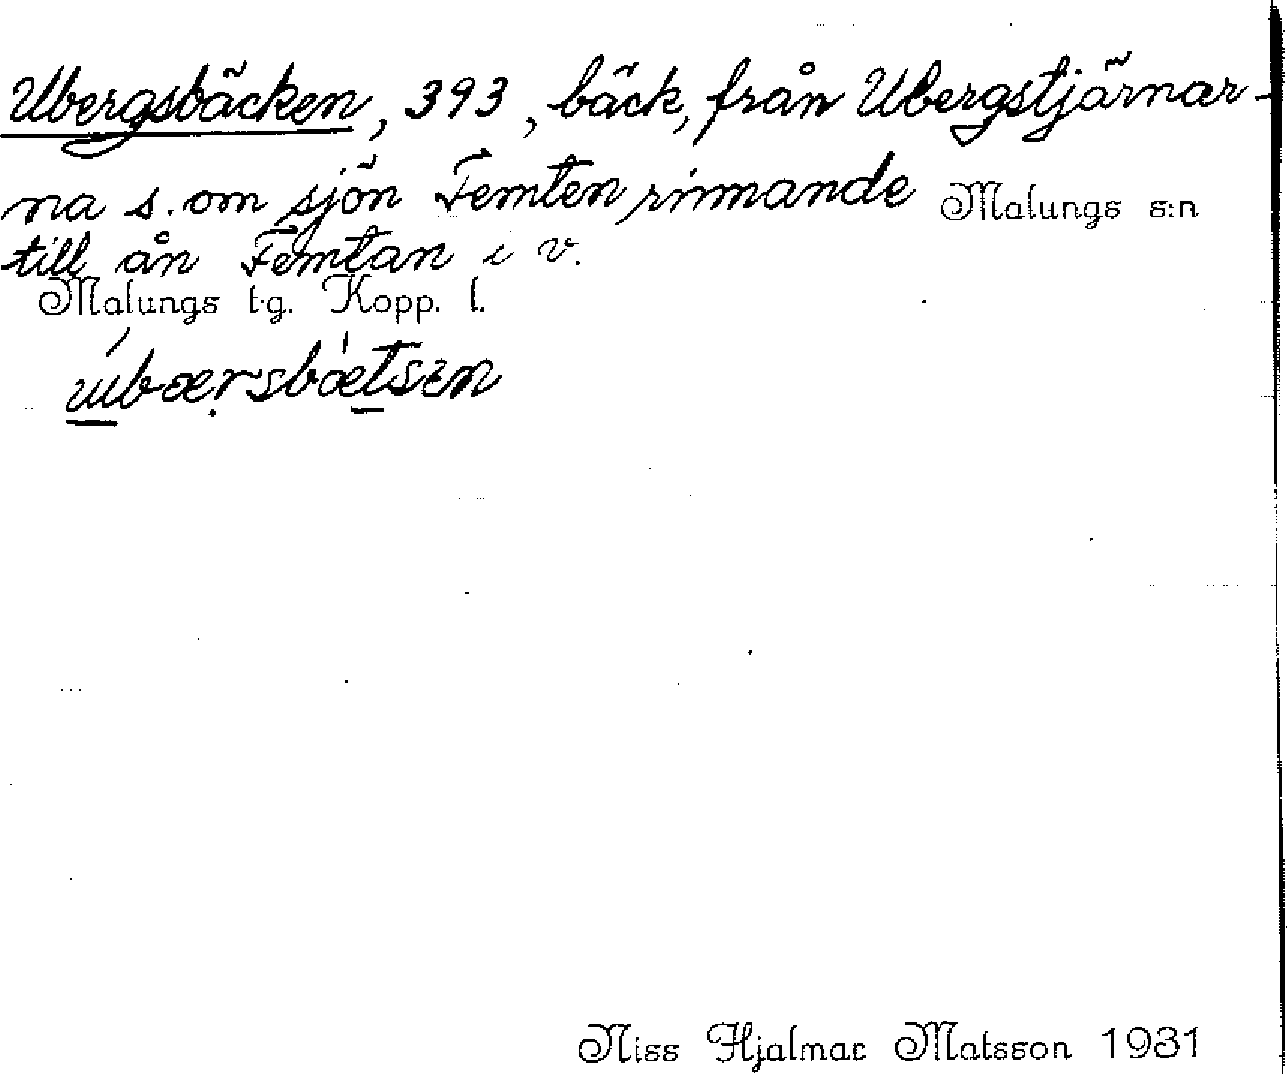 Ubergsbäcken, 393, bäck, från Ubergstjärnar-
na s. om sjön Femten rinnande Malungs s:n
till ån Femtan i v.
Malungs t.g. Kopp. l.
Niss Hjalmar Matsson 1931